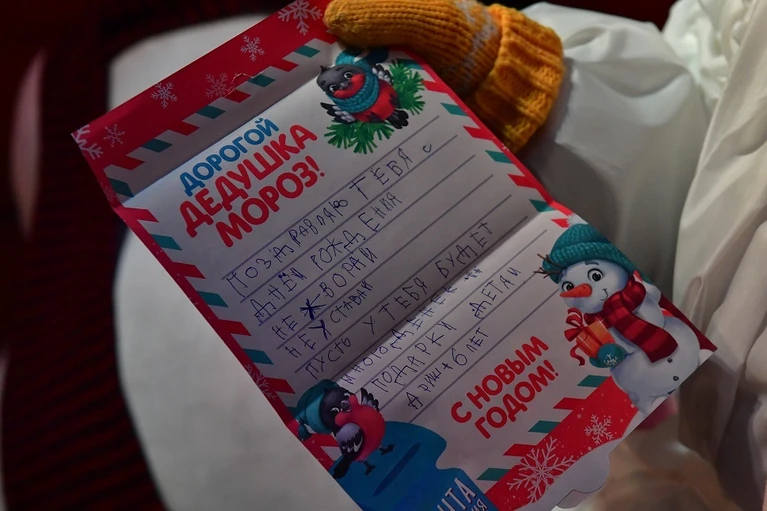 ДОРОГОЙ
ДЕДУШКА
МОРОЗ!
ПОЗДРАВЛЯЮ ТЕБЯ С
ДНЁМ РОЖДЕНИЯ
НЕ ХВОРАЙ
НЕ УСТАВАЙ
ПУСТЬ У ТЕБЯ БУДЕТ
ПОДАРКИ ДЕТАМ
АРИША 6 ЛЕТ
С НОВЫМ
ГОДОМ!